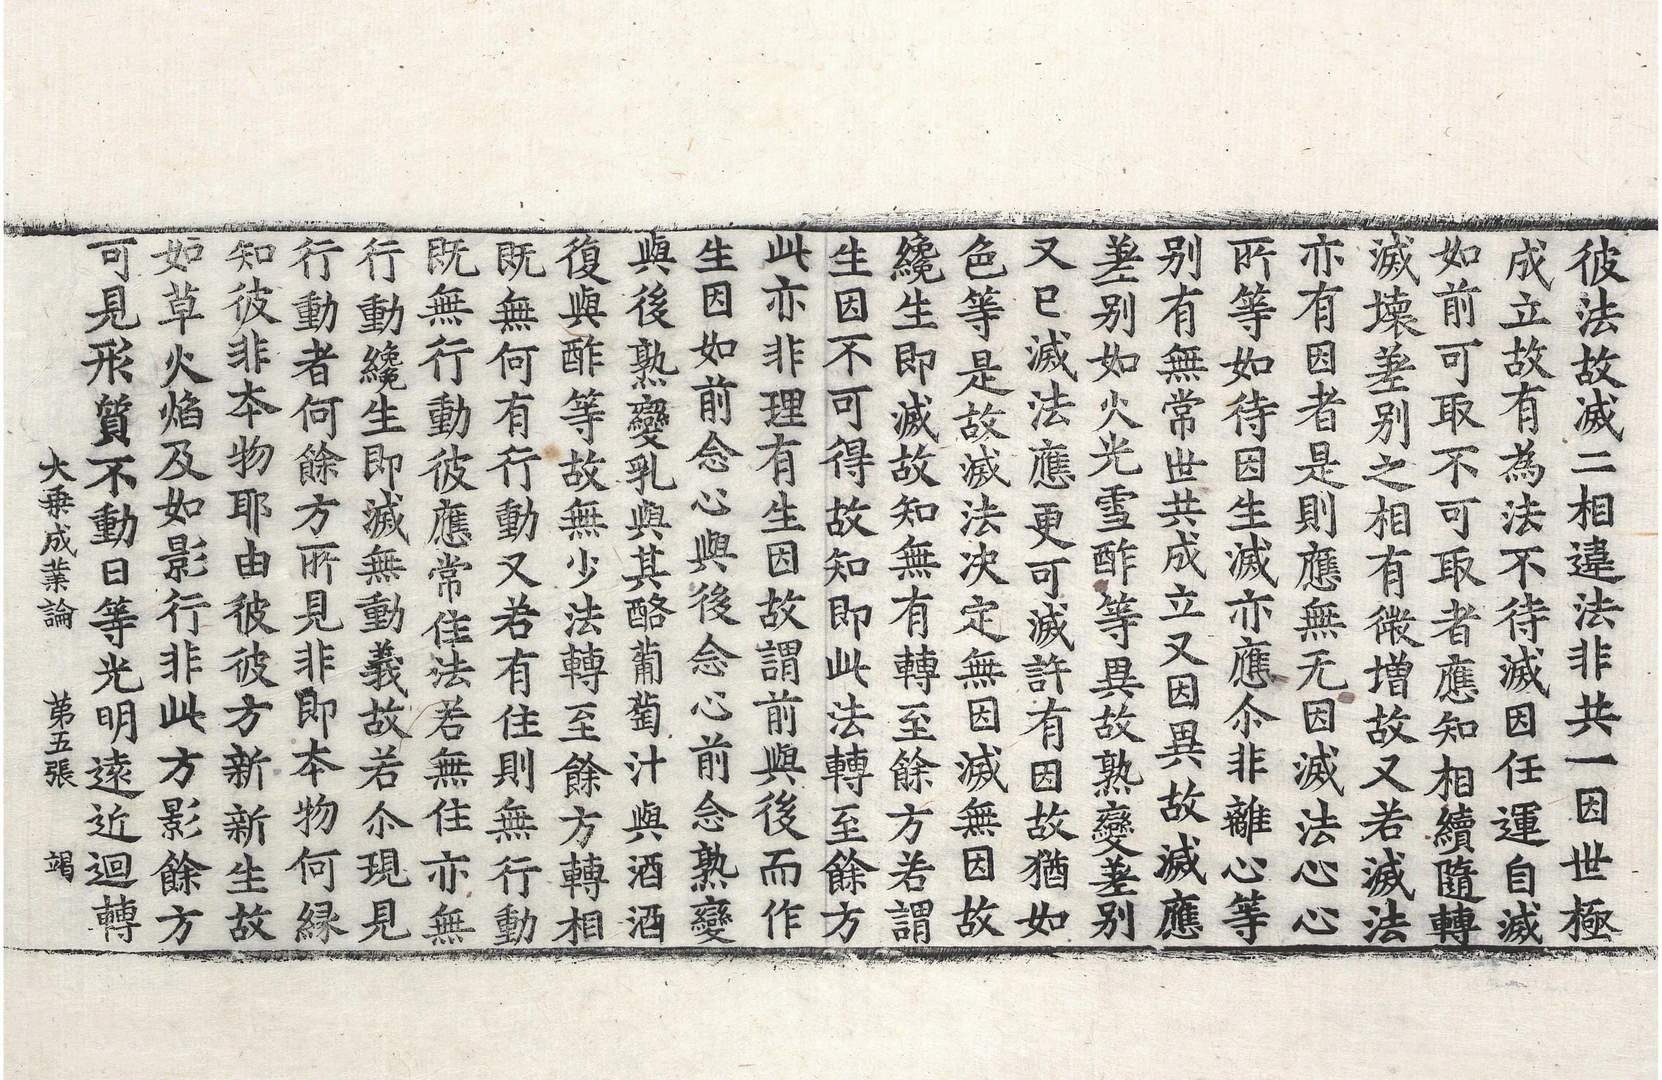 彼法故滅二相違法非共一因世極
成立故有為法不待滅因任運自滅
如前可取不可取者應知相續隨轉
滅壞差別之相有微增故又若滅法
亦有因者是則應無无因滅法心心
所等如待因生滅亦應尒非離心等
別有無常世共成立又因異故滅應
差別如火光雪酢等異故熟變差別
又已滅法應更可滅許有因故猶如
色等是故滅法决定無因滅無因故
纔生即滅故知無有轉至餘方若謂
生因不可得故知即此法轉至餘方
此亦非理有生因故謂前與後而作
生因如前念心與後念心前念熟變
與後熟變乳與其酪蒲萄汁與酒酒
復與酢等故無少法轉至餘方轉相
既無何有行動又若有住則無行動
既無行動彼應常住法若無住亦無
行動纔生即滅無動義故若尒現見
行動者何餘方所見非即本物何縁
知彼非本物耶由彼彼方新新生故
如草火焰及如影行非此方影餘方
可見形質不動日等光明遠近迴轉
大乗成業論　第五張　竭